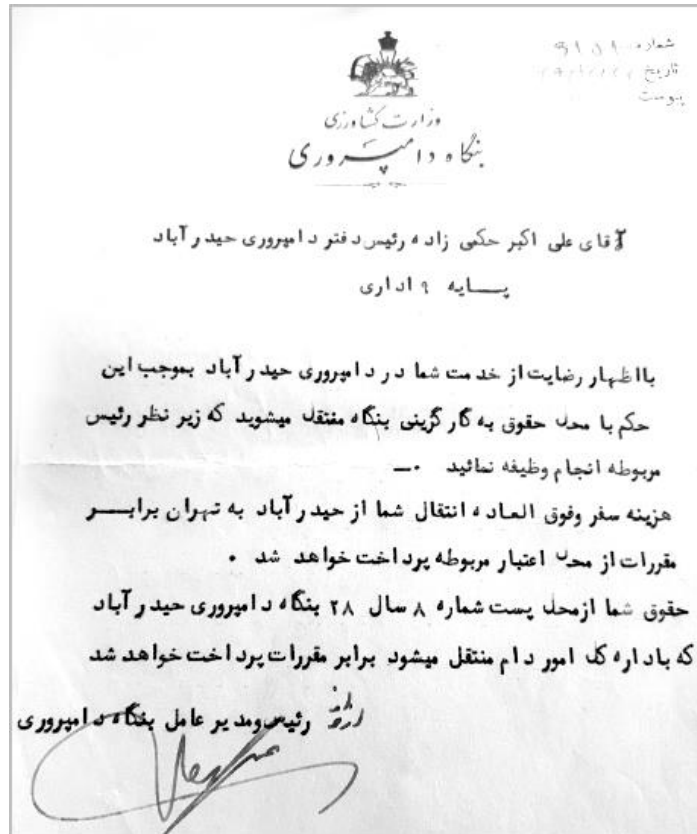 شماره ۹۱۵۹
تاریخ
پیوست
وزارت کشاورزی
بنگاه دامپروری
آقای علی اکبر حکمی زاده رئیس دفتر دامپروری حیدرآباد
پایه ۹ اداری
بااظهار رضایت از خدمت شما در دامپروری حیدرآباد بموجب این
حکم با محل حقوق به کارگزینی بنگاه منتقل میشوید که زیر نظر رئیس
مربوطه انجام وظیفه نمائید ۰ــ
هزینه سفر وفوق العاده انتقال شما از حیدرآباد به تهران برابر
مقررات از محل اعتبار مربوطه پرداخت خواهد شد ۰
حقوق شما ازمحل پست شماره ۸ سال ۲۸ بنگاه دامپروری حیدرآباد
که باداره کل امور دام منتقل میشود برابر مقررات پرداخت خواهد شد
رئیس ومدیر عامل بنگاه دامپروری